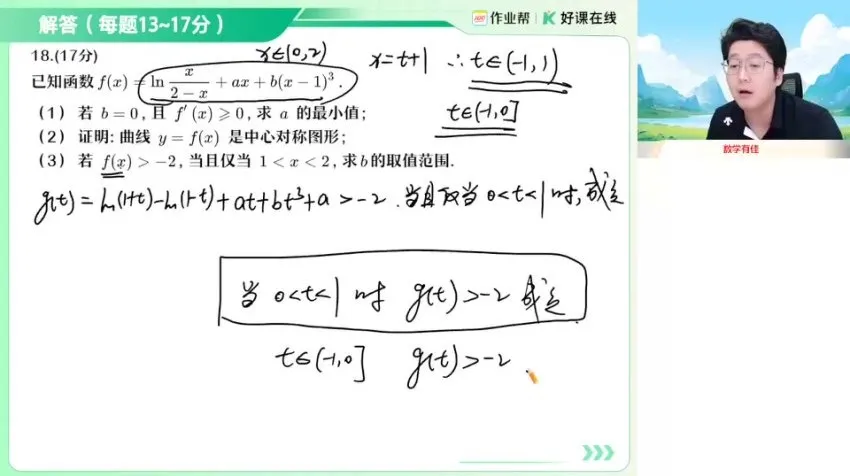 解答（每题13~17分）
作业帮 好课在线
18.(17分)
x∈(0,2)
x=t+1 ∴t∈(-1,1)
已知函数 f(x)=ln x/(2-x)+ax+b(x-1)³.
t∈(-1,0]
（1）若 b=0, 且 f′(x)⩾0, 求 a 的最小值;
（2）证明: 曲线 y=f(x) 是中心对称图形;
（3）若 f(x)>-2, 当且仅当 1<x<2, 求b的取值范围.
数学有佳
g(t)=ln(1+t)-ln(1-t)+at+bt³+a>-2. 当且仅当 0<t<1时, 成立
当 0<t<1 时 g(t)>-2 成立
t∈(-1,0] g(t)>-2